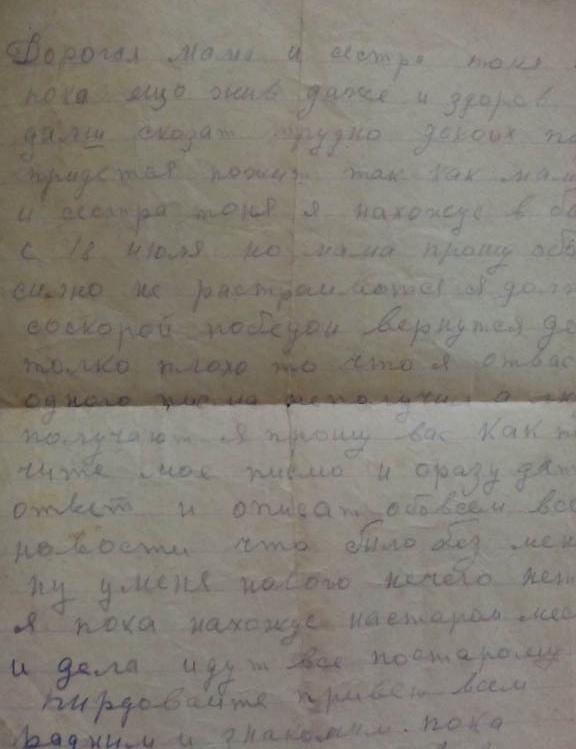 Дорогая мама и сестра тоня
пока ещо жив даже и здоров
далш сказат трудно
придется пожит так как мам
и сестра тоня я нахожус в бо
с 18 июля но мама прошу обо
силно не растраиватся я дол
соскорой победои вернутся до
толко плохо то что я отвас
одного писма неполучил а
получают я прошу вас как по
чите мое писмо и сразу дат
ответ и описат обовсем все
новости что было без мен
ну уменя нового нечего нет
я пока нахожус настаром мес
и дела идут все постарому
пирдовайте привет всем
радним и знакомим. пока